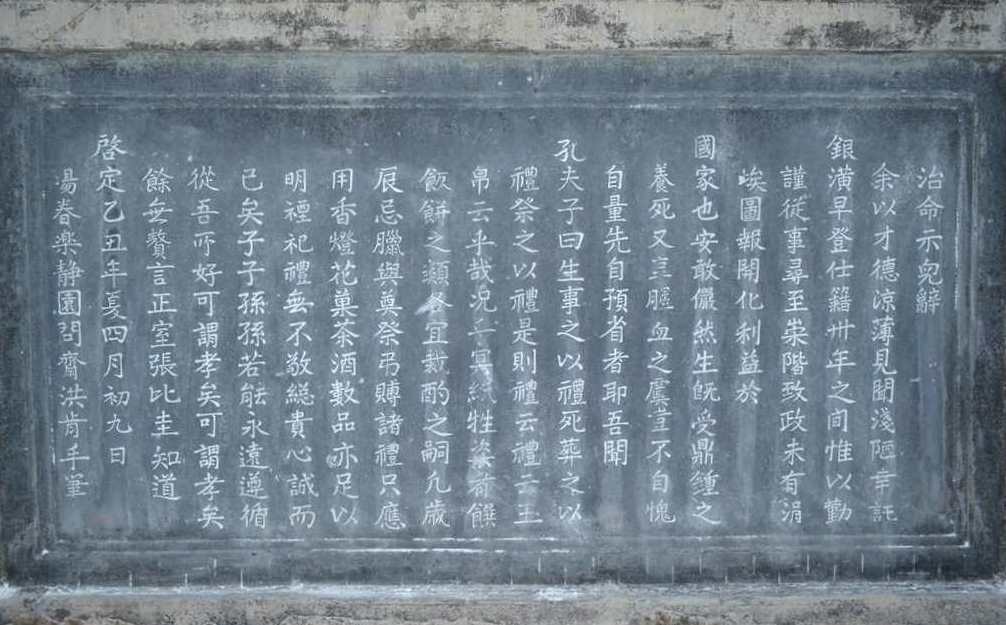 治命示兒辭
余以才德涼薄見聞淺陋幸託
銀潢早登仕籍卅年之间惟以勤
謹従事尋至崇階致政未有涓
埃圖報開化利益於
國家也安敢儼然生既受鼎鍾之
養死又享膻血之薦豈不自愧
自量先自預省者耶吾聞
孔夫子曰生事之以禮死葬之以
禮祭之以禮是則禮云禮云玉
帛云乎哉况乎冥紙牲粢肴饌
飯餅之類各宜裁酌之嗣凢歲
辰忌臘與奠祭弔賻諸禮只應
用香燈花菓茶酒數品亦足以
明禋祀禮無不敬縂貴心誠而
已矣子子孫孫若能永遠遵循
從吾所好可謂孝矣可謂孝矣
餘無贅言正室張比圭知道
啓定乙丑年夏四月初九日
場春楽静園問齋洪肯手筆